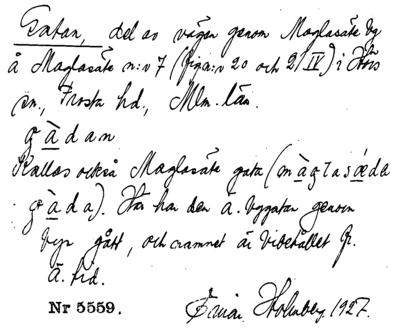 Gatan, del av vägen genom Maglasäte by
å Maglasäte n:o 7 (fig:n 20 och 2/IV) i Hörs
sn., Frosta hd., Mlm. län.
gàdan
Kallas också Maglasäte gata (màglasǽde
gàda). Här har den ä. bygatan genom
byn gått, och namnet är bibehållet fr.
ä. tid.
Nr 5559. Einar Holmberg 1927.